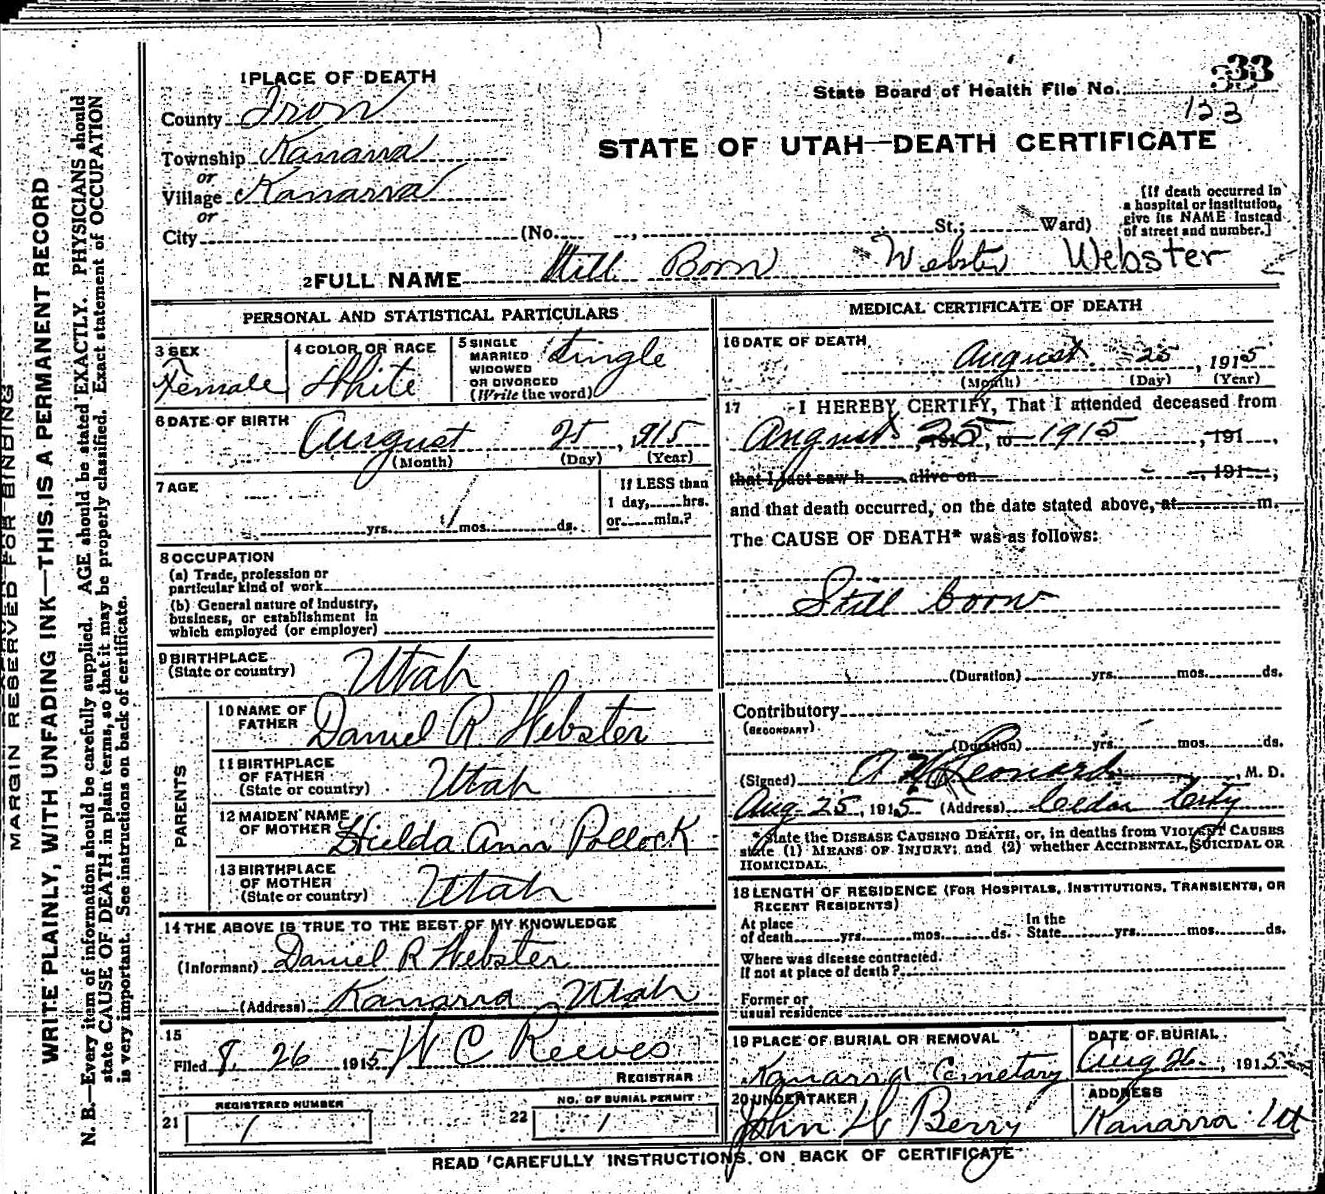 33
State Board of Health File No.
123
STATE OF UTAH—DEATH CERTIFICATE
1 PLACE OF DEATH
County Iron
Township Kanarra
or
Village Kanarra
or
City (No. , St.; Ward)
[If death occurred in
a hospital or institution,
give its NAME instead
of street and number.]
2 FULL NAME Still Born Webster Webster
PERSONAL AND STATISTICAL PARTICULARS
3 SEX
Female
4 COLOR OR RACE
White
5 SINGLE
MARRIED
WIDOWED
OR DIVORCED
(Write the word)
Single
6 DATE OF BIRTH
August 25, 915
(Month) (Day) (Year)
7 AGE
yrs. mos. ds.
If LESS than
1 day, hrs.
or min.?
8 OCCUPATION
(a) Trade, profession or
particular kind of work
(b) General nature of industry,
business, or establishment in
which employed (or employer)
9 BIRTHPLACE
(State or country)
Utah
PARENTS
10 NAME OF
FATHER
Daniel R Webster
11 BIRTHPLACE
OF FATHER
(State or country)
Utah
12 MAIDEN NAME
OF MOTHER
Hilda Ann Pollock
13 BIRTHPLACE
OF MOTHER
(State or country)
Utah
14 THE ABOVE IS TRUE TO THE BEST OF MY KNOWLEDGE
(Informant) Daniel R Webster
(Address) Kanarra Utah
15
Filed 8. 26 1915 W C Reeves
REGISTRAR
21 REGISTERED NUMBER
1
22 NO. OF BURIAL PERMIT
1
MEDICAL CERTIFICATE OF DEATH
16 DATE OF DEATH
August 25, 1915
(Month) (Day) (Year)
17 I HEREBY CERTIFY, That I attended deceased from
August 25, to 1915, 191,
that I last saw h alive on 191;
and that death occurred, on the date stated above, at m.
The CAUSE OF DEATH* was as follows:
Still born
(Duration) yrs. mos. ds.
Contributory
(SECONDARY)
(Duration) yrs. mos. ds.
(Signed) Leonard, M. D.
Aug 25, 1915 (Address) Cedar City
* State the DISEASE CAUSING DEATH, or, in deaths from VIOLENT CAUSES
state (1) MEANS OF INJURY; and (2) whether ACCIDENTAL, SUICIDAL OR
HOMICIDAL.
18 LENGTH OF RESIDENCE (FOR HOSPITALS, INSTITUTIONS, TRANSIENTS, OR
RECENT RESIDENTS)
At place
of death yrs. mos. ds.
In the
State yrs. mos. ds.
Where was disease contracted.
If not at place of death?
Former or
usual residence
19 PLACE OF BURIAL OR REMOVAL
Kanarra Cemetary
DATE OF BURIAL
Aug 26, 1915
20 UNDERTAKER
John W Berry
ADDRESS
Kanarra Ut
READ CAREFULLY INSTRUCTIONS ON BACK OF CERTIFICATE
MARGIN RESERVED FOR BINDING
WRITE PLAINLY, WITH UNFADING INK—THIS IS A PERMANENT RECORD
N. B.—Every item of information should be carefully supplied. AGE should be stated EXACTLY. PHYSICIANS should
state CAUSE OF DEATH in plain terms, so that it may be properly classified. Exact statement of OCCUPATION
is very important. See instructions on back of certificate.